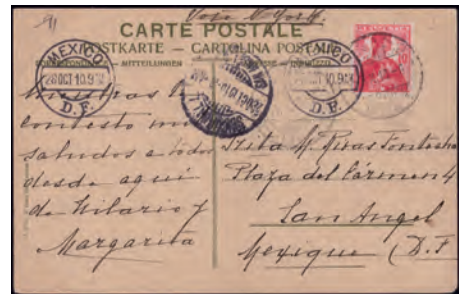 Voie N. York.
CARTE POSTALE
POSTKARTE — CARTOLINA POSTALE
MITTEILUNGEN
MEXICO
28 OCT 10.9
D.F.
MEXICO
OCT 10.9
D.F.
HELVETIA
10
mientras
contesto mis
saludos a todos
desde aqui
de Hilario y
Margarita
Srita M. Rivas
Plaza del Cármen 4
San Angel
Mexique (D.F